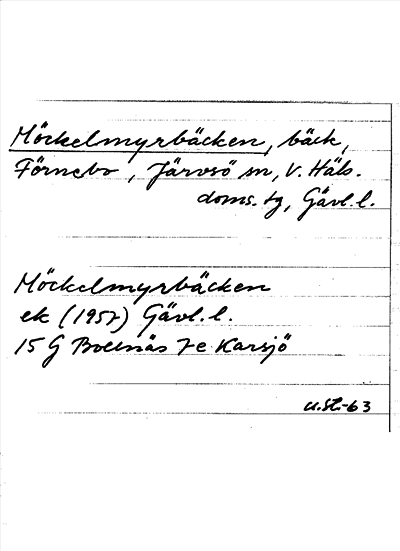 Möckelmyrbäcken, bäck,
Förnebo, Järvsö sn, V. Häls.
doms. tg, Gävl. l.
Möckelmyrbäcken
ek (1957) Gävl. l.
15 G Bollnäs 7e Karsjö
U.St.-63